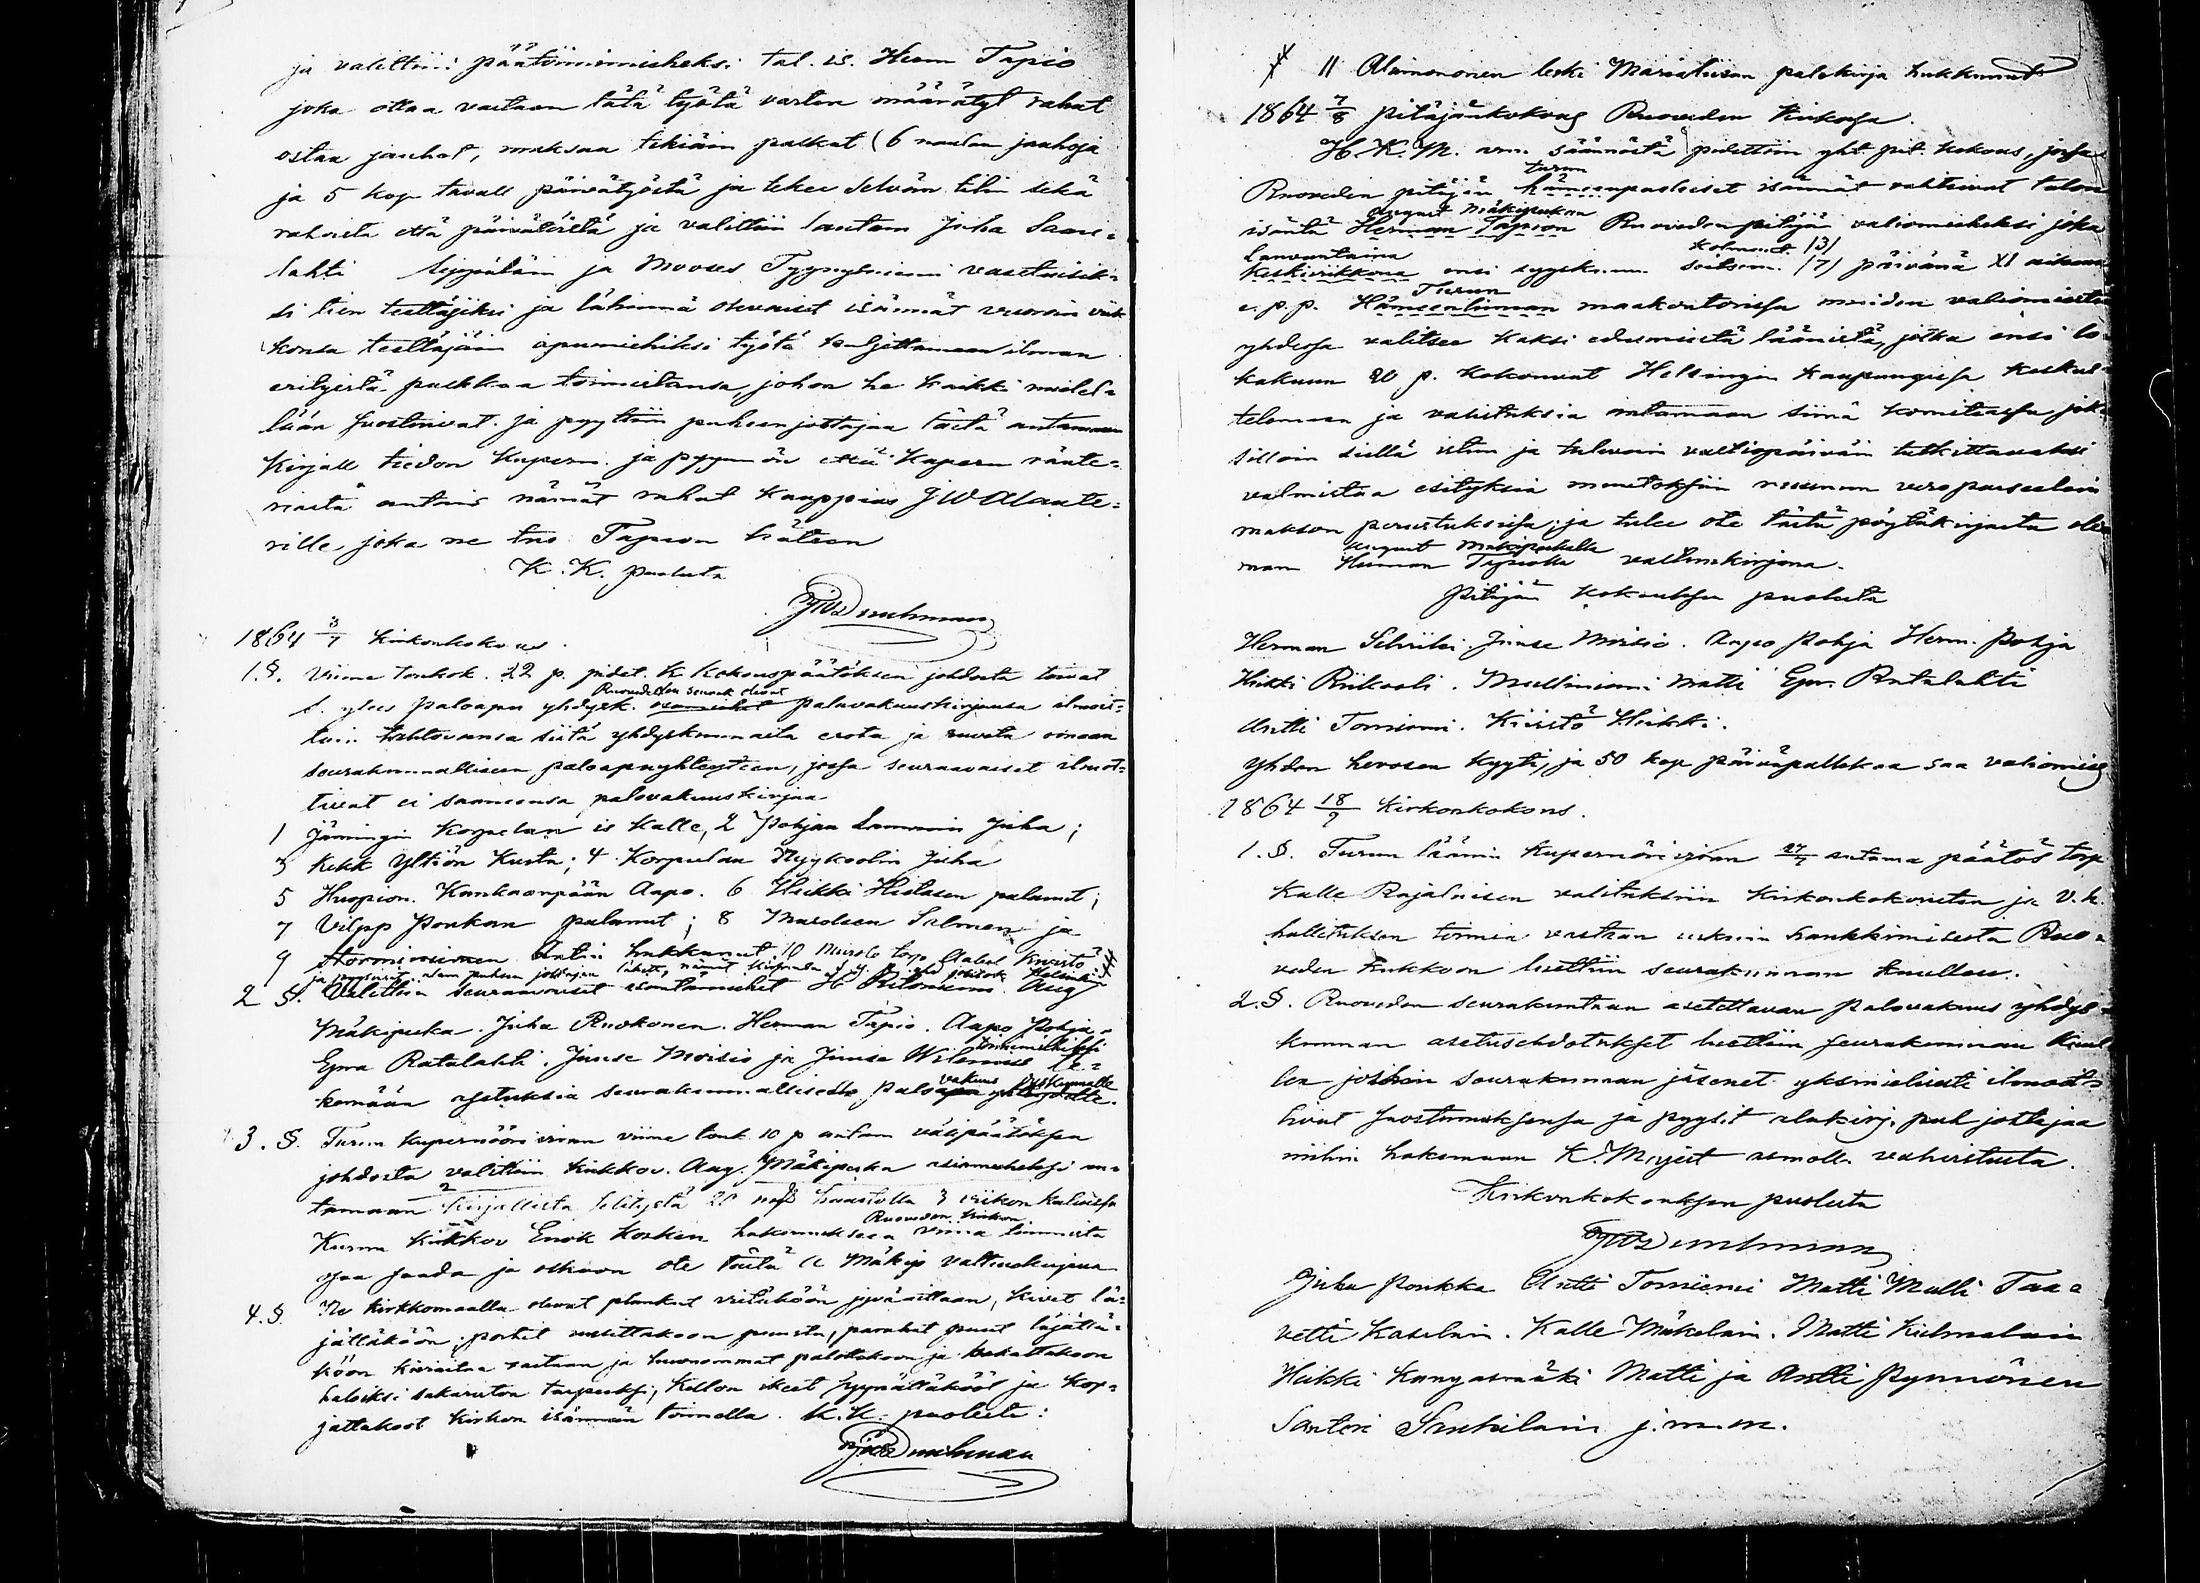 ja valittiin päätoimimieheksi tal. is. Herm Tapio
joka ottaa vastaan tätä työtä varten määrätyt rahat
ostaa jauhot, maksaa tekiäin palkat (6 naulaa jauhoja
ja 5 kop tavall päivätyöstä ja tekee selvän tilin sekä
rahoista että päivätöistä ja valittiin lautam Juha Saari=
lahti Seppälän ja Mooses Tyynyniemi vasetuisik=
si tien teettäjiksi ja lähinnä olevaiset isännät vuoroin viik
konsa teettäjäin apumiehiksi työtä kuljettamaan ilman
erityistä palkkaa toimistansa, johon he kaikki mielel=
lään suostuivat. ja pyyttiin puheenjohtajaa tästä antamaan
Kirjall tiedon Kupern. ja pyynnön että Kupern ränte=
riasta antais nämät rahat kauppias J W
rille joka ne tuo Tapion käteen
K. K. puolesta
1864 3/7 Kirkonkokous.
1.§. Viime toukok. 22 p. pidet. K Kokouspäätöksen johdosta toivat
s. ylees paloapu yhdysk. Ruovedellen seurak olevat palovakuuskirjansa ilmoit=
tain tahtovansa siitä yhdyskunnasta erota ja ruveta omaan
seurakunnalliseen paloapuyhteyteen, jossa seuraavaiset ilmoit=
tivat ei saaneensa palovakuuskirjaa
1 Jämingin Korpelan is Kalle, 2 Pohjan Lammin Juha;
3 Kekk Yltiön Kusta; 4 Korpulan Nyykoolin Juha
5 Huopion. Kankaanpään Aapo. 6 Heikki Hietasen palanut;
7 Vilpp Ponkan palanut; 8 Muroleen Salmen ja
9 Antin hukkunut, 10 Murole torp Aabel Kiviistö #
2 §. Valittiin seuraavaiset asiantuntiat H Ritoniemi. Aug
Mäkipuka. Juha Ruokonen. Herman Tapio. Aapo Pohja.
Epra Ratalahti. Juuse Moisio ja Juuse toimimiehiksi te=
kemään asetuksia seurakunnalliselle palovakuus yhdyskunnalle.
3. §. Turun Kupernööriviran viime touk. 10 p antam välipäätöksen
johdosta valittiin kirkkov. Aug. Mäkipuka asiamieheksi an=
tamaan kirjallista selitystä 20 uhalla 3 viikon kuluessa
Kuinn Kirkkov Enok Kosken hakemuksen Ruoveden kirkon viina
saa saada ja olkoon ote tästä A Mäkip valtuuskirjana
4.§. Ne kirkkomaalla olevat plankut vietäköön pyväaittaan, kivet lä=
jättäköön, portit uusittakoon puusta, parahat puut läjättä=
köön kiviaitaa vastaan ja huonommat palotakoon ja hakattakoon
haloiksi sakaruston tarpeeksi, Kellon ikeet syynättäköön ja kor=
jattakoot kirkon isännän toimella. K.K. puolesta:
# 11 leski Marialiisan palokirja hukkunut
1864 7/8 pitäjänkokous Ruoveden Kirkossa.
H. K. M. arm. säännöstä pidettiin yht. pit. kokous, jossa
Ruoveden pitäjän turun hämeenpuoleiset isännät valitsivat talon
isäntä August Mäkipukan Herman Tapion Ruoveden pitäjän valiomieheksi joka
Lauvantaina Keskiviikkona ensi syyskuun kolmant. (3) seitsem. (7) päivänä XI aikana
e. p. p. Turun Hämeenlinnan maakontorissa muiden valiomiesten
yhdessä valitsee kaksi edusmiestä läänistä, jotka ensi lo=
kakuun 20 p. kokoovat Helsingin kaupungissa keskus=
telemaan ja valistuksia antamaan siinä komiteassa joka
silloin siellä istuu ja tulevain valtiopäiväin tutkittavaksi
valmistaa esityksiä muutoksiin suunnan veroparseelein
makson perustuksissa; ja tulee ote tästä pöytäkirjasta ole=
maan August Mäkipukalla Herman Tapiolla valtuuskirjana.
Pitäjän kokouksen puolesta
Herman Seluilei. Juuse Moisio. Aapo Pohja Herm. Pohja
Heikki Riikooli. Mulliniemi Matti Epr. Ratalahti
Antti Tomiemi. Kiiistö Heikki.
Yhden hevosen kyyti, ja 50 kop päiväpalkkaa saa valiomies
1864 18/9 Kirkonkokous.
1.§. Turun läänin Kupernööriviran 27/7 antama päätös torp
Kalle Rajaluisen valituksiin Kirkonkokousten ja V.k.
hallituksen toimia vastaan urkuin hankkimisesta Ruo=
veden kirkkoon luettiin seurakunnan kuullen.
2.§. Ruoveden seurakuntaan asetettavan Palovakuus yhdys=
kunnan asetusehdotukset luettiin seurakunnan kuul=
len joihin seurakunnan jäsenet yksmielisesti ilmoit=
tivat suostumuksensa ja pyysit alakirj. puh johtajaa
niihin hakemaan K. Majest armoll. vahvistusta.
Kirkonkokouksen puolesta
Juha Ponkka Antti Tomiemi Matti Mulli Taa=
vetti Kaselain. Kalle Mäkelain. Matti Kielmalain
Heikki Kangasmäki Matti ja Antti Pynnönen
Santeri Sauhilain j.m.m.